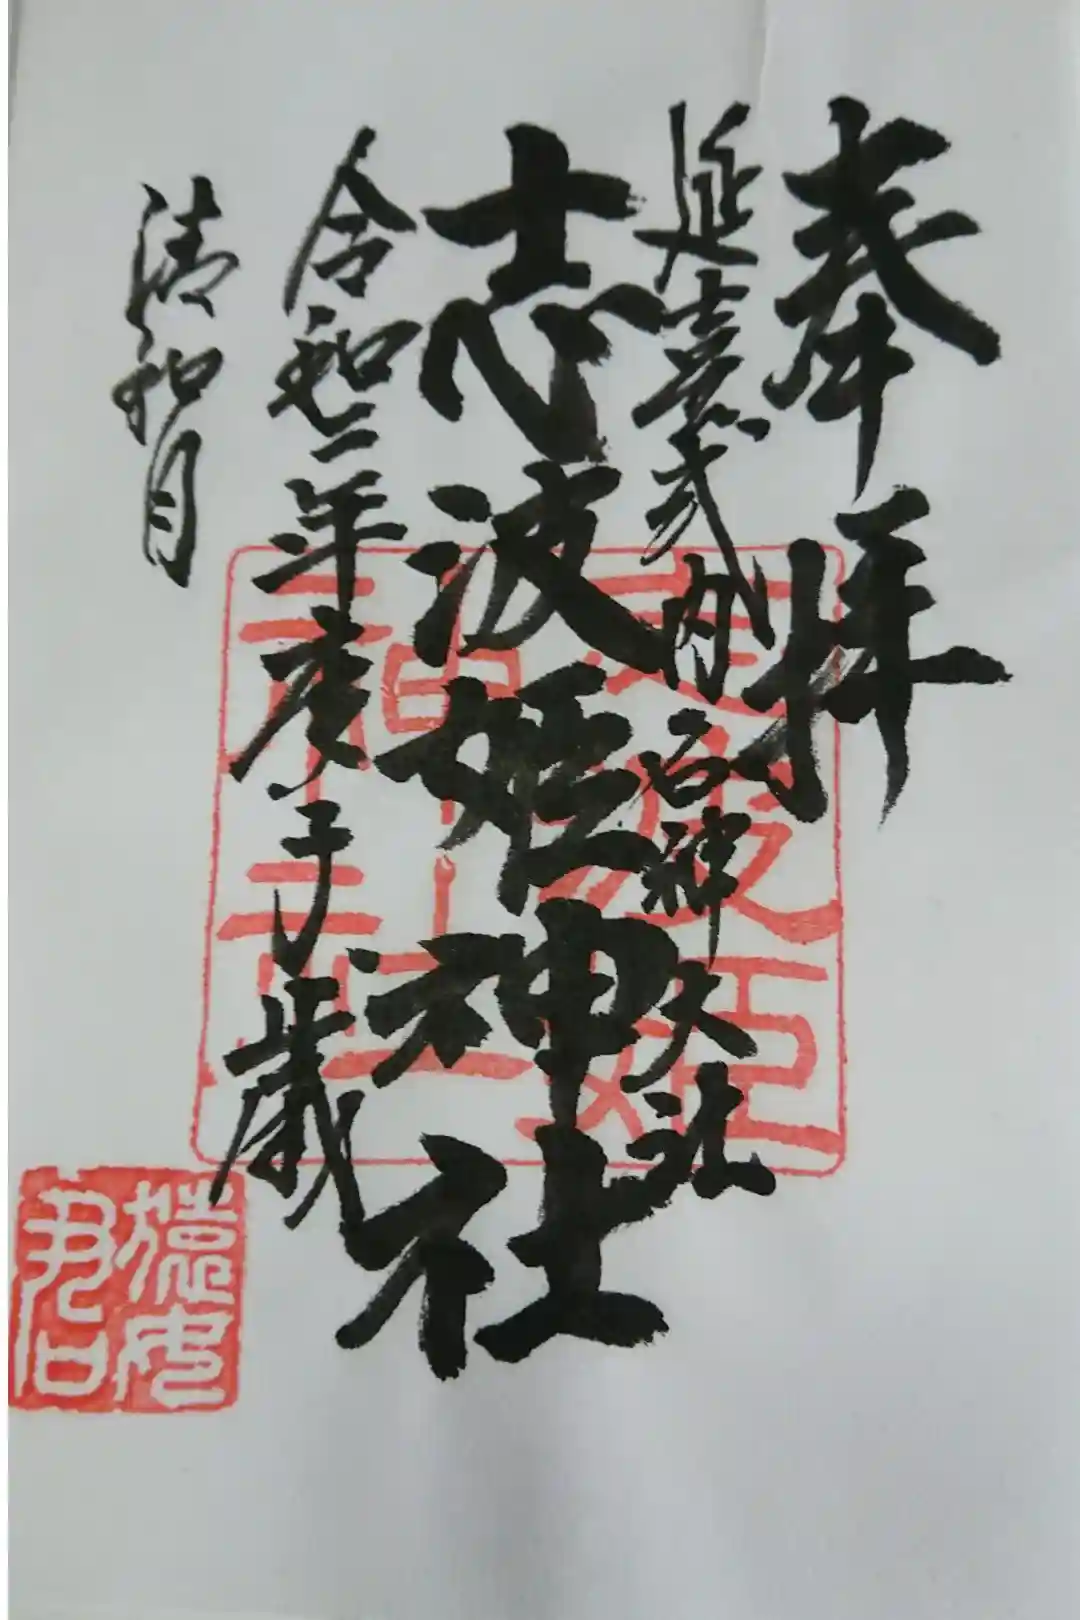 奉拝
延喜式内名神大社
志波姫神社
令和二年庚子歳
清和月
志波姫神社